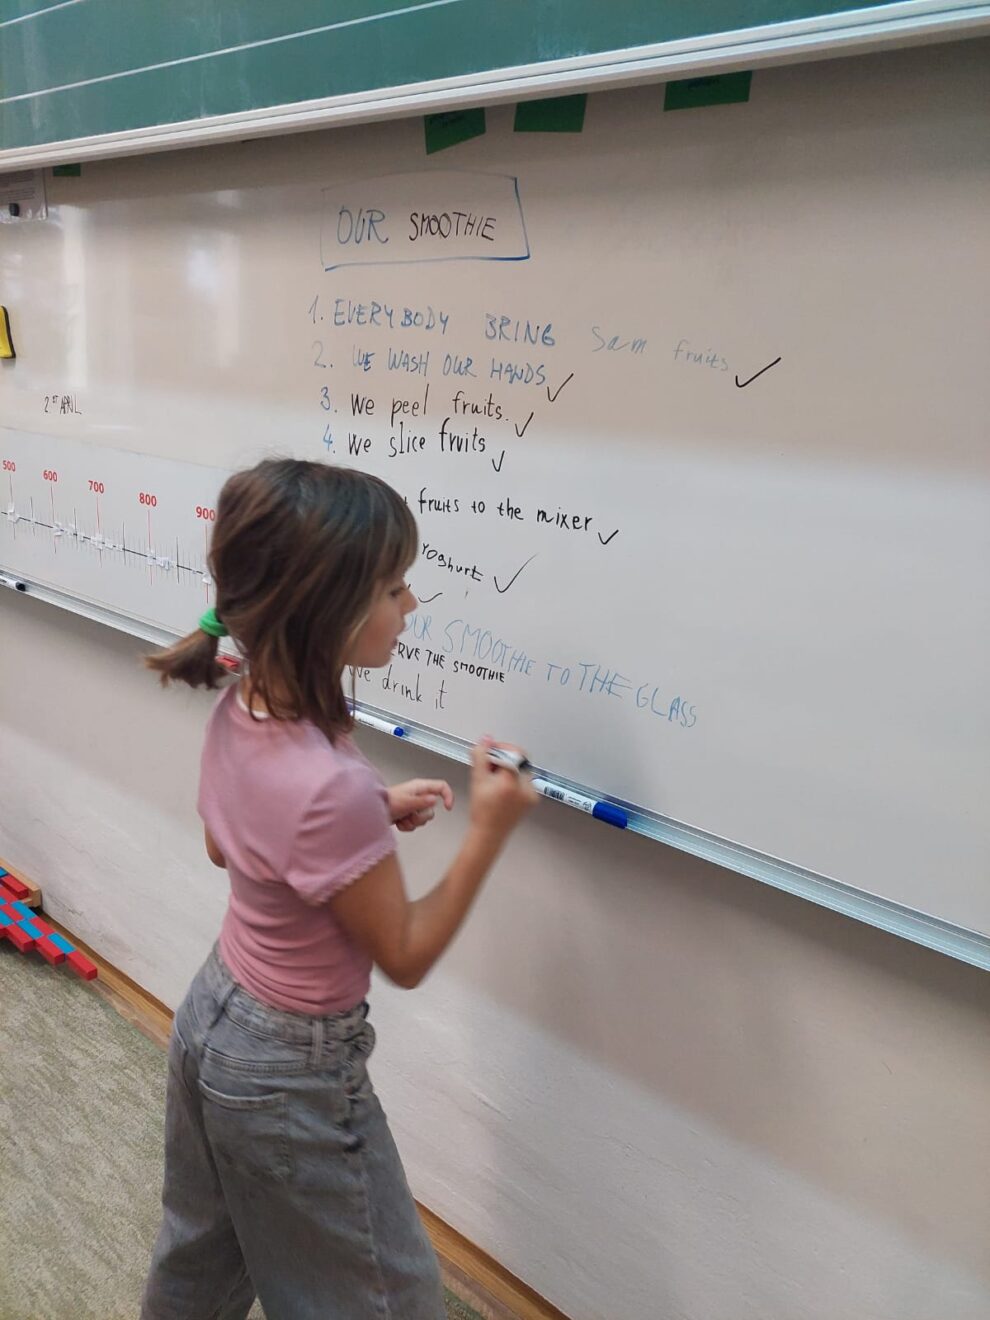 OUR SMOOTHIE
1. EVERYBODY BRING Sam fruits ✓
2. WE WASH OUR HANDS ✓
3. We peel fruits. ✓
4. We slice fruits ✓
fruits to the mixer ✓
yoghurt ✓
✓
OUR SMOOTHIE TO THE GLASS
ERVE THE SMOOTHIE
We drink it
2.ST APRIL
500 600 700 800 900